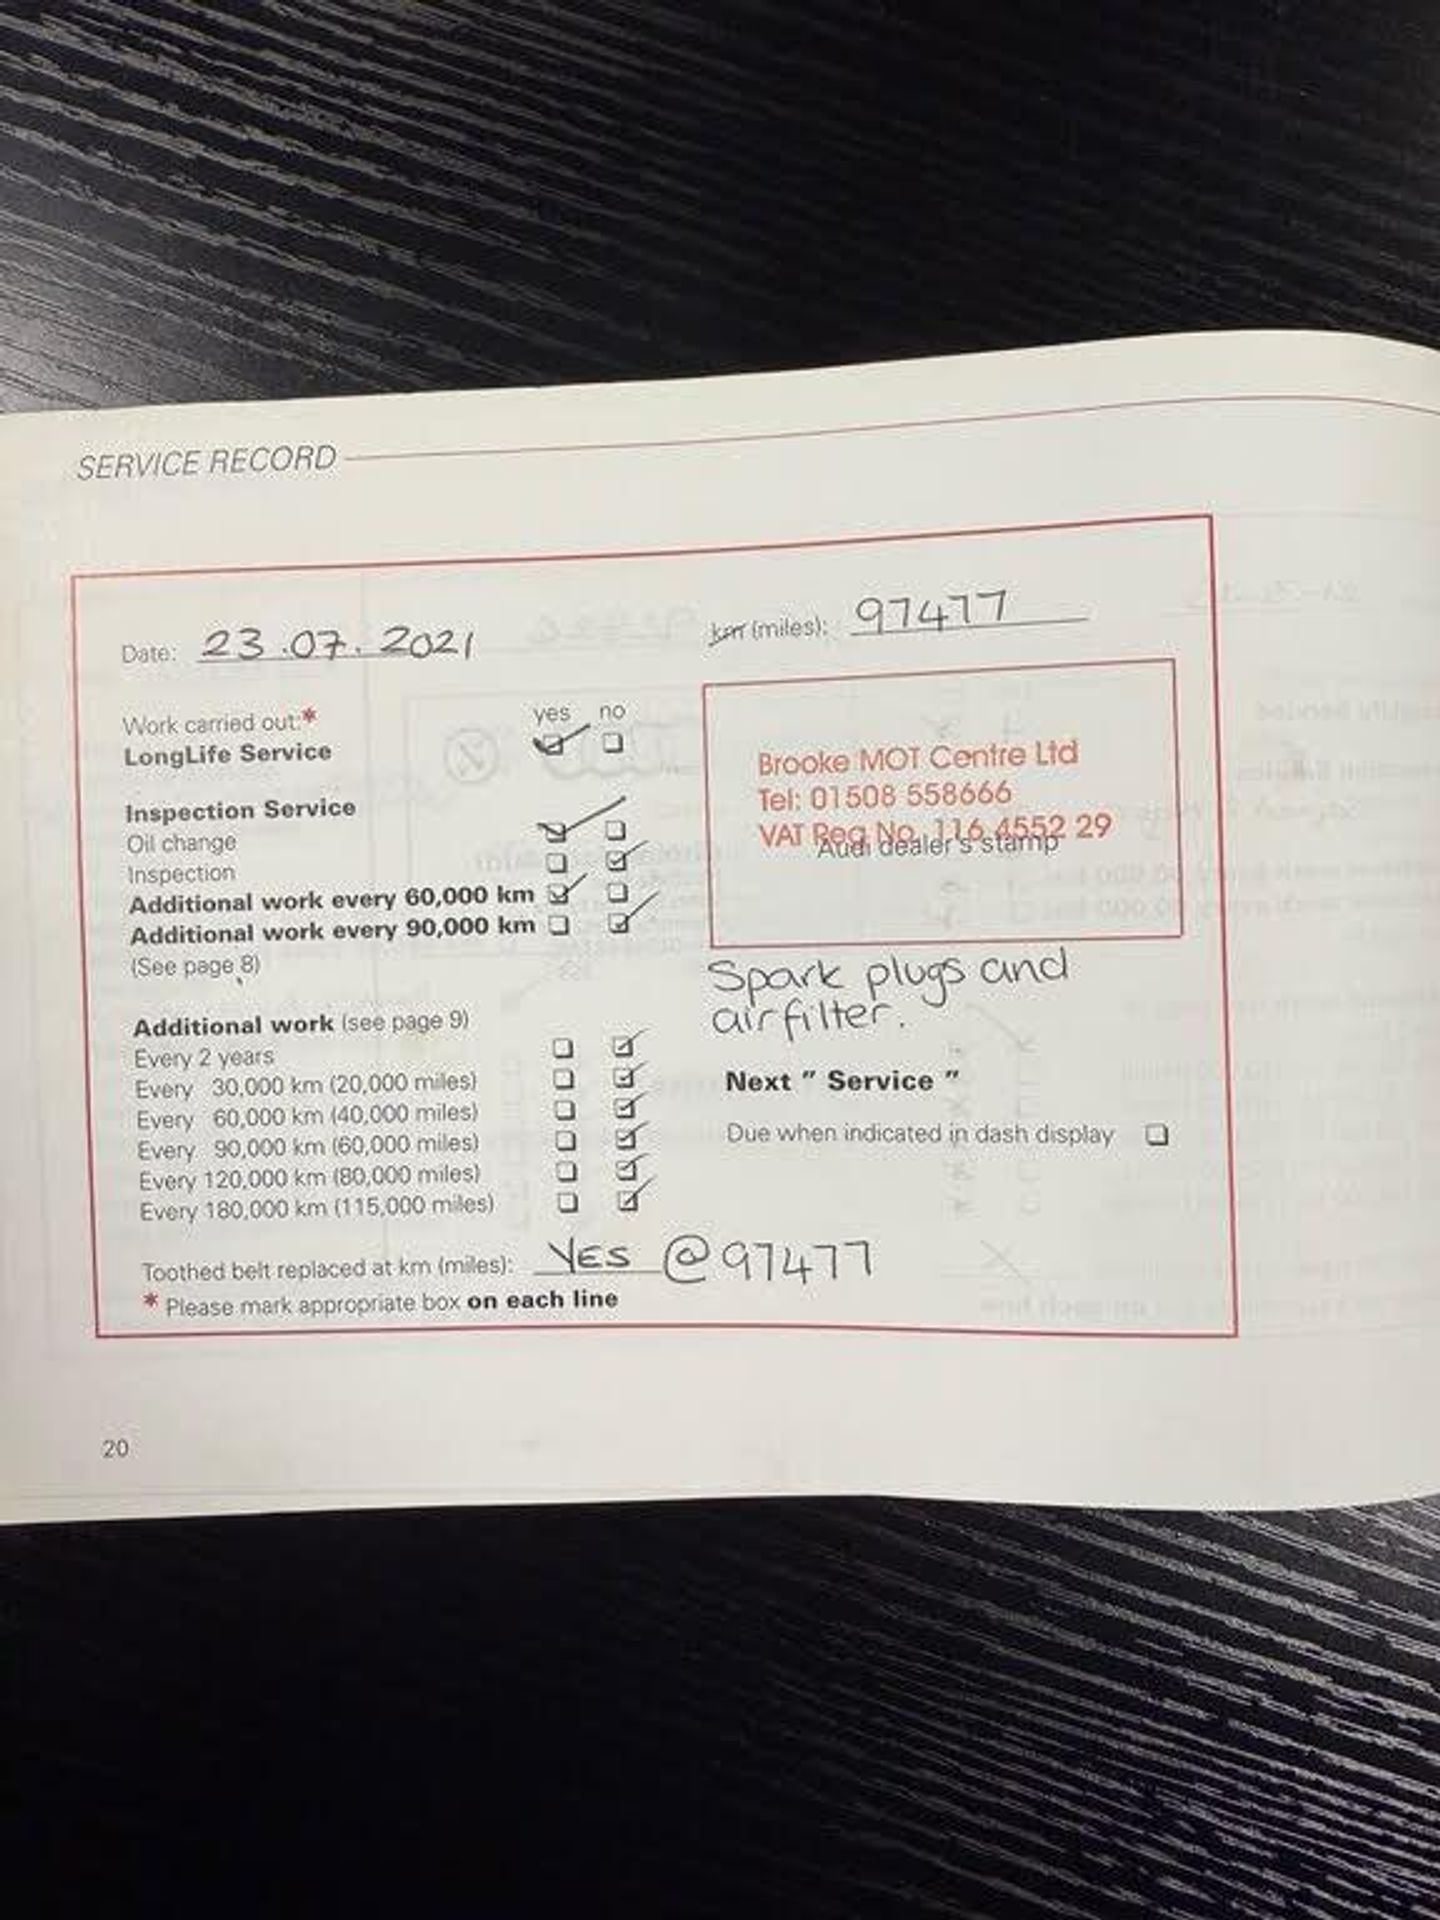 SERVICE RECORD
Date: 23.07.2021
km (miles): 97477
Work carried out:* yes no
LongLife Service
Inspection Service
Oil change
Inspection
Additional work every 60,000 km
Additional work every 90,000 km
(See page 8)
Additional work (see page 9)
Every 2 years
Every 30,000 km (20,000 miles)
Every 60,000 km (40,000 miles)
Every 90,000 km (60,000 miles)
Every 120,000 km (80,000 miles)
Every 180,000 km (115,000 miles)
Brooke MOT Centre Ltd
Tel: 01508 558666
VAT Reg No. 116 4552 29
Audi dealer's stamp
Spark plugs and
airfilter.
Next " Service "
Due when indicated in dash display
Toothed belt replaced at km (miles): YES @ 97477
* Please mark appropriate box on each line
20